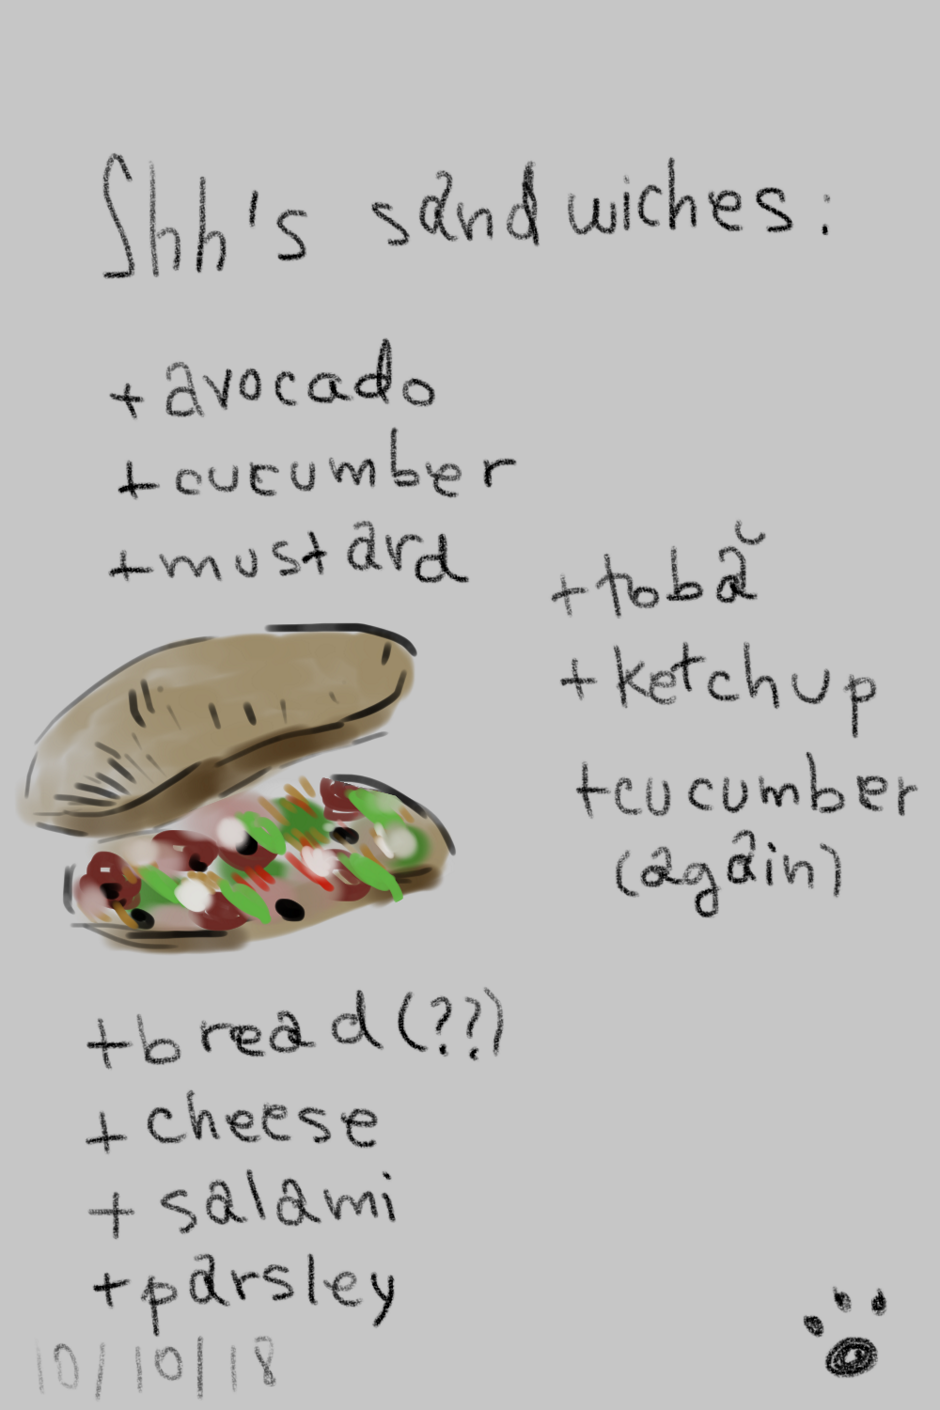 Shh's sandwiches:
+avocado
+cucumber
+mustard
+tobă
+ketchup
+cucumber
(again)
+bread(??)
+cheese
+salami
+parsley
10/10/18